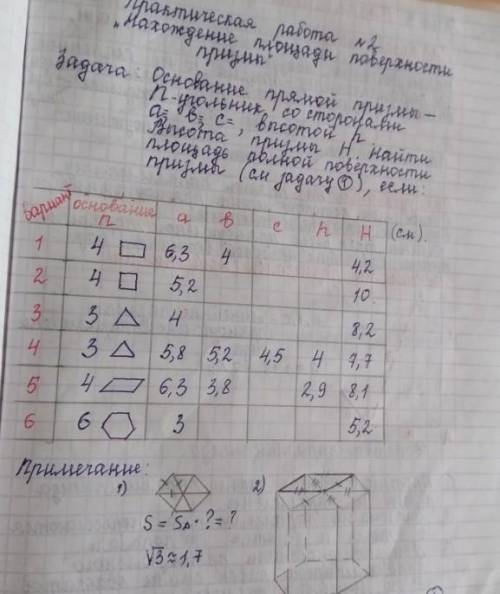 Практическая работа №2
„Нахождение площади поверхности
призмы"
Задача: Основание прямой призмы –
n-угольник со сторонами
a= в= c= , высотой h
Высота призмы H. Найти
площадь полной поверхности
призмы (см задачу ①), если:
вариант основание n a в c h H (см).
1 4 6,3 4 4,2
2 4 5,2 10
3 3 4 8,2
4 3 5,8 5,2 4,5 4 7,7
5 4 6,3 3,8 2,9 8,1
6 6 3 5,2
Примечание:
1) 2)
S = S△ · ? = ?
√3 ≈ 1,7